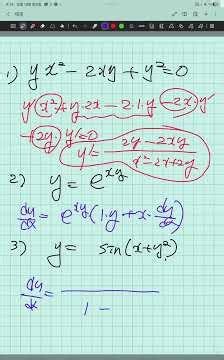 1) yx² - 2xy + y² = 0
y' x² + y·2x - 2·1·y - 2x·y'
+ 2y y' = 0
y' = (2y - 2xy) / (x² - 2x + 2y)
2) y = e^(xy)
dy/dx = e^(xy) (1·y + x·dy/dx)
3) y = sin(x + y²)
dy/dx = / (1 -